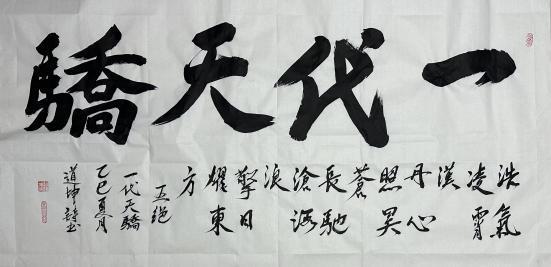 一代天驕
浩氣
凌霄
漢
丹心
照昊
蒼
長馳
滄
浪
擎日
耀東
方
五绝
一代天驕
乙巳夏月
道坤詩书